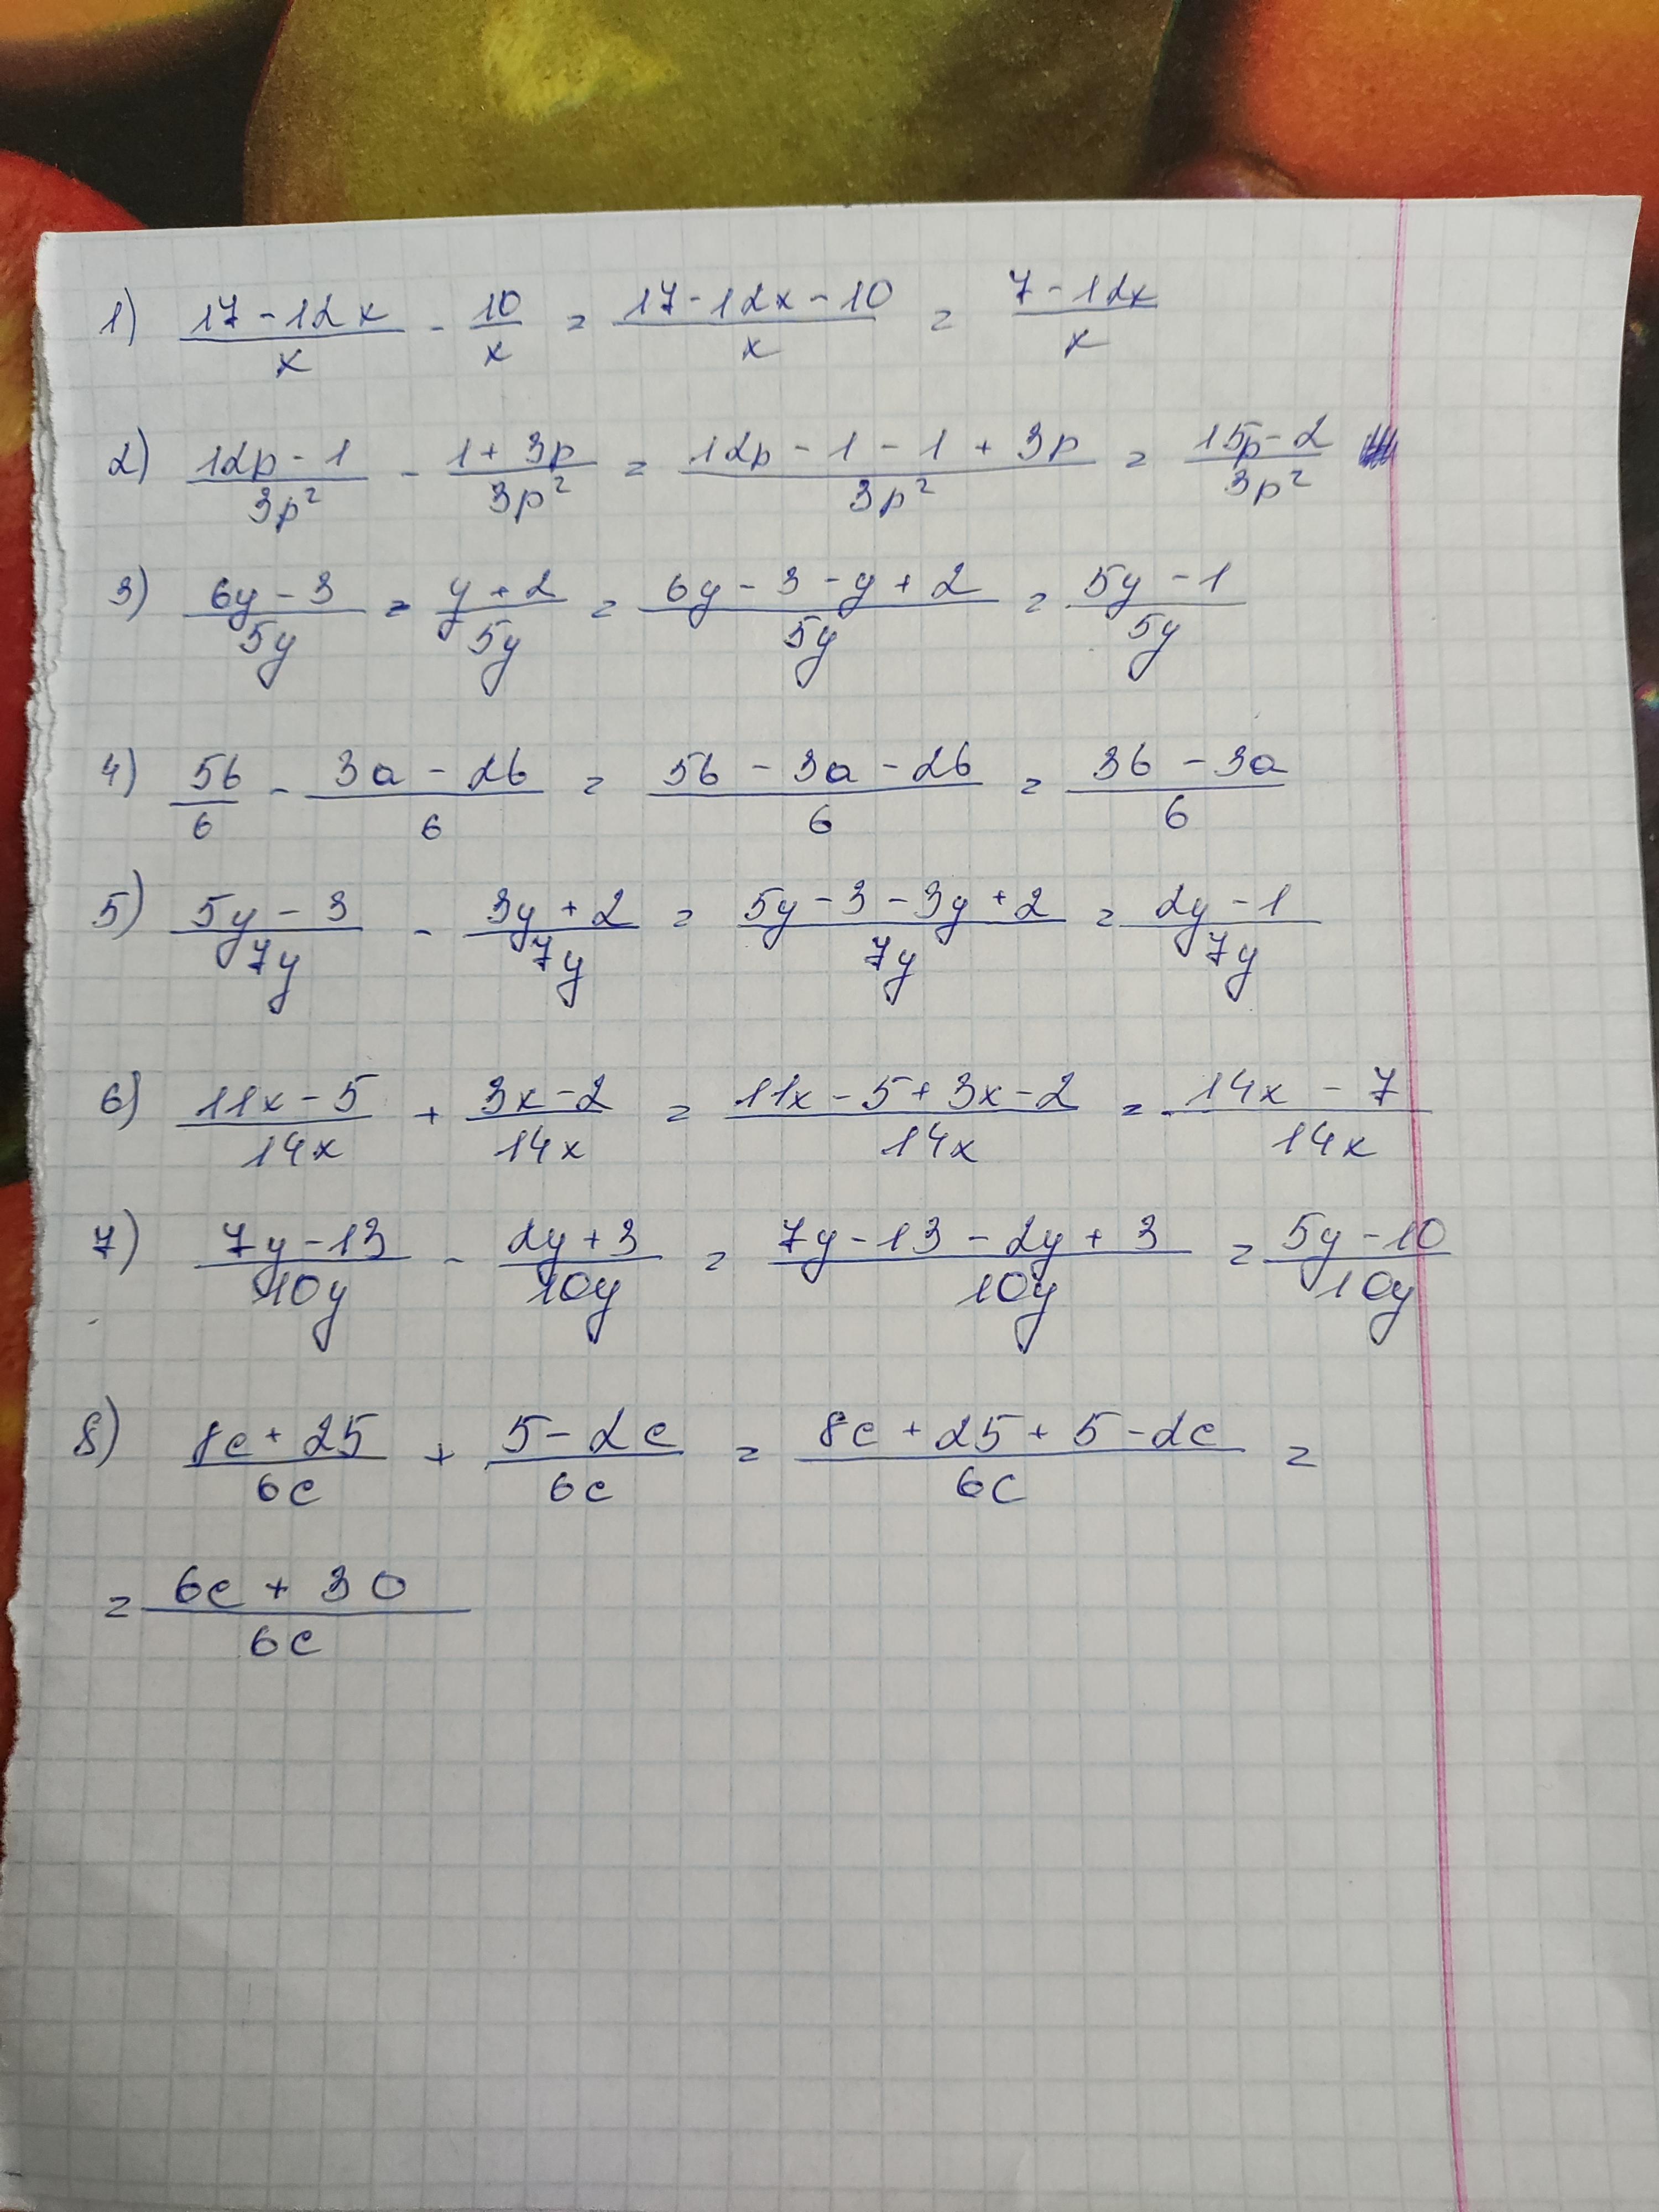 1) (17-12x)/x - 10/x = (17-12x-10)/x = (7-12x)/x
2) (12p-1)/3p² - (1+3p)/3p² = (12p-1-1+3p)/3p² = (15p-2)/3p²
3) (6y-3)/5y - (y+2)/5y = (6y-3-y+2)/5y = (5y-1)/5y
4) 5b/6 - (3a-2b)/6 = (5b-3a-2b)/6 = (3b-3a)/6
5) (5y-3)/7y - (3y+2)/7y = (5y-3-3y+2)/7y = (2y-1)/7y
6) (11x-5)/14x + (3x-2)/14x = (11x-5+3x-2)/14x = (14x-7)/14x
7) (7y-13)/10y - (2y+3)/10y = (7y-13-2y+3)/10y = (5y-10)/10y
8) (8c+25)/6c + (5-2c)/6c = (8c+25+5-2c)/6c =
= (6c+30)/6c